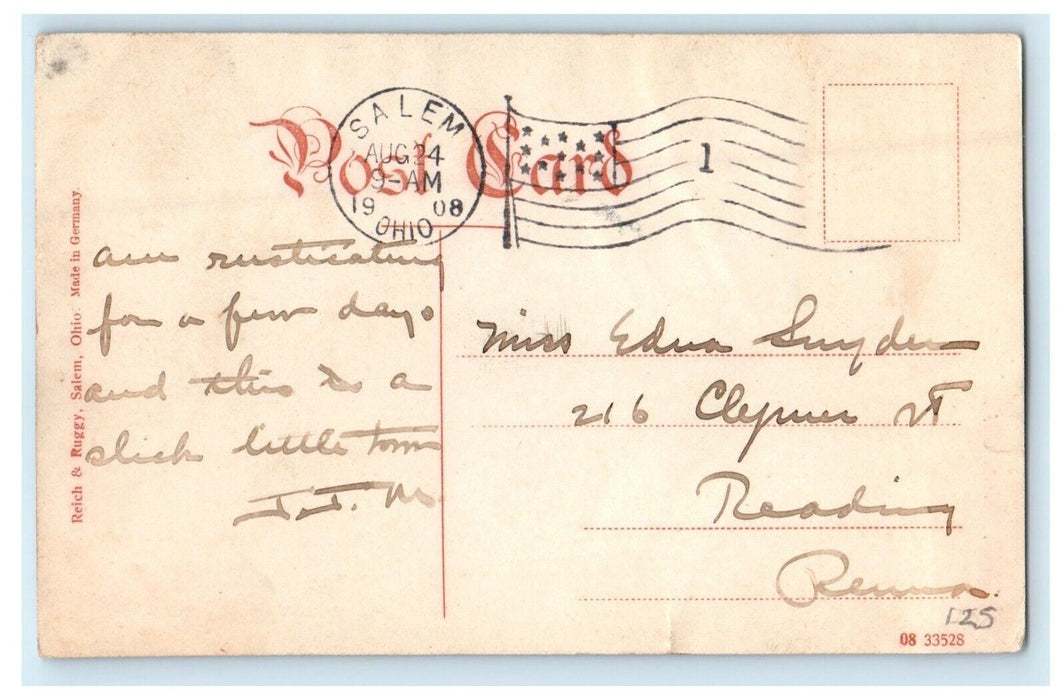 Post Card
SALEM
AUG 24
9-AM
1908
OHIO
1
am rusticating
for a few days
and this is a
slick little town
J. J. M.
Miss Edna Snyder
216 Clymer St
Reading
Penna.
125
08 33528
Reich & Ruggy, Salem, Ohio. Made in Germany.